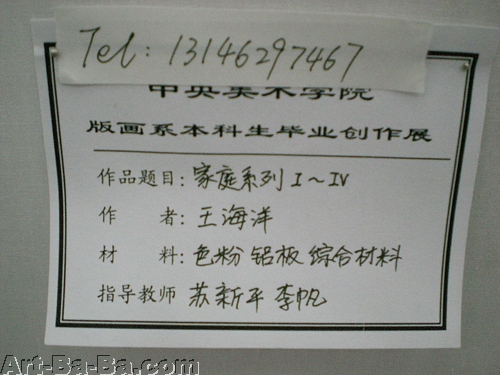 Tel: 13146297467
中央美术学院
版画系本科生毕业创作展
作品题目: 家庭系列 I～IV
作 者: 王海洋
材 料: 色粉 铝板 综合材料
指导教师 苏新平 李帆
Art-Ba-Ba.com